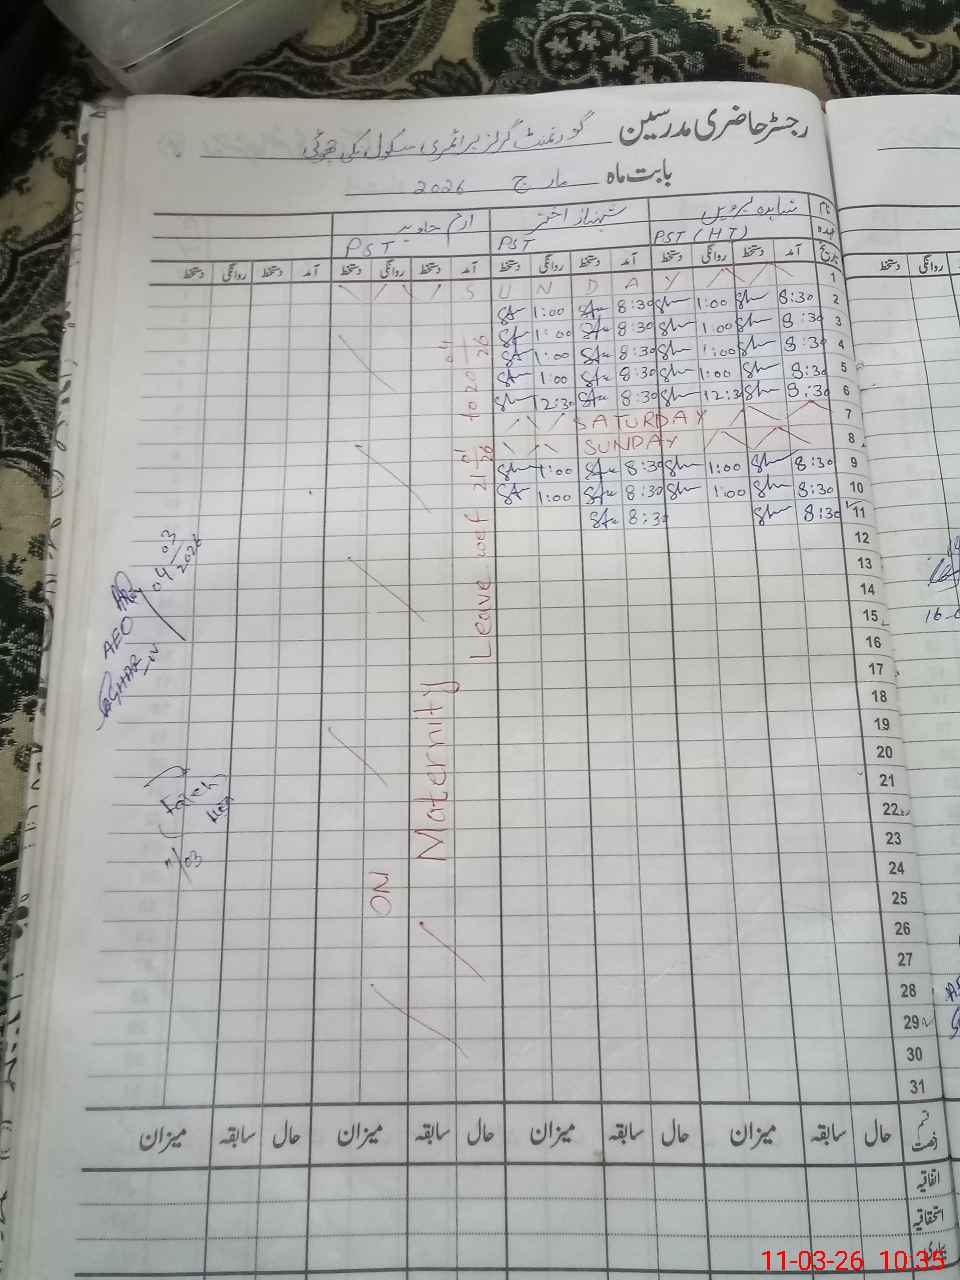 رجسٹر حاضری مدرسین گورنمنٹ گرلز پرائمری سکول
بابت ماہ مارچ 2026
نام شاہدہ پروین شہناز اختر ارم جاوید
عہدہ PST (HT) PST PST
تاریخ آمد دستخط روانگی دستخط آمد دستخط روانگی دستخط آمد دستخط روانگی دستخط آمد دستخط روانگی دستخط
1 S U N D A Y
2 8:30 1:00 8:30 1:00
3 8:30 1:00 8:30 1:00
4 8:30 1:00 8:30 1:00
5 8:30 1:00 8:30 1:00
6 8:30 12:30 8:30 12:30
7 SATURDAY
8 SUNDAY
9 8:30 1:00 8:30 1:00
10 8:30 1:00 8:30 1:00
11 8:30 8:30
12
13
14
15
16
17
18
19
20
21
22
23
24
25
26
27
28
29
30
31
ON Maternity Leave wef 21-01/26 to 20-04/26
AEO
04/03/2026
11/03
قسم رخصت حال سابقہ میزان حال سابقہ میزان حال سابقہ میزان حال سابقہ میزان
اتفاقیہ
استحقاقیہ
بیماری
11-03-26 10:35